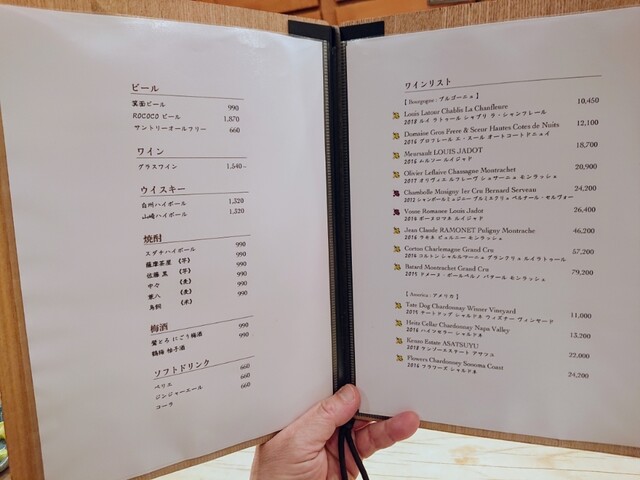 ビール
箕面ビール 990
ROCOCO ビール 1,870
サントリーオールフリー 660
ワイン
グラスワイン 1,540~
ウイスキー
白州ハイボール 1,320
山崎ハイボール 1,320
焼酎
スダチハイボール 990
薩摩茶屋 (芋) 990
佐藤 黒 (芋) 990
中々 (麦) 990
兼八 (麦) 990
鳥飼 (米) 990
梅酒
鶯とろ にごり梅酒 990
鶴梅 柚子酒 990
ソフトドリンク
ペリエ 660
ジンジャーエール 660
コーラ 660
ワインリスト
【 Bourgogne : ブルゴーニュ 】
Louis Latour Chablis La Chanfleure 10,450
2018 ルイ ラトゥール シャブリ ラ・シャンフレール
Domaine Gros Frere & Sœur Hautes Cotes de Nuits 12,100
2016 グロフレール エ・スール オートコートドニュイ
Meursault LOUIS JADOT 18,700
2016 ムルソー ルイジャド
Olivier Leflaive Chassagne Montrachet 20,900
2017 オリヴィエ ルフレーヴ シャサーニュ モンラッシェ
Chambolle Musigny 1er Cru Bernard Serveau 24,200
2012 シャンボールミュジニー プルミエクリュ ベルナール・セルヴォー
Vosne Romanee Louis Jadot 26,400
2014 ボーヌロマネ ルイジャド
Jean Claude RAMONET Puligny Montrache 46,200
2016 ラモネ ピュルニー モンラッシェ
Corton Charlemagne Grand Cru 57,200
2014 コルトン シャルルマーニュ グランクリュ ルイラトゥール
Batard Montrachet Grand Cru 79,200
2015 ドメーヌ・ポールペルノ バタール モンラッシェ
【 America : アメリカ 】
Tate Dog Chardonnay Winter Vineyard 11,000
2015 テートドッグ シャルドネ ウィズナー ヴィンヤード
Heitz Cellar Chardonnay Napa Valley 13,200
2016 ハイツセラー シャルドネ
Kenzo Estate ASATSUYU 22,000
2018 ケンゾーエステート アサツユ
Flowers Chardonnay Sonoma Coast 24,200
2016 フラワーズ シャルドネ